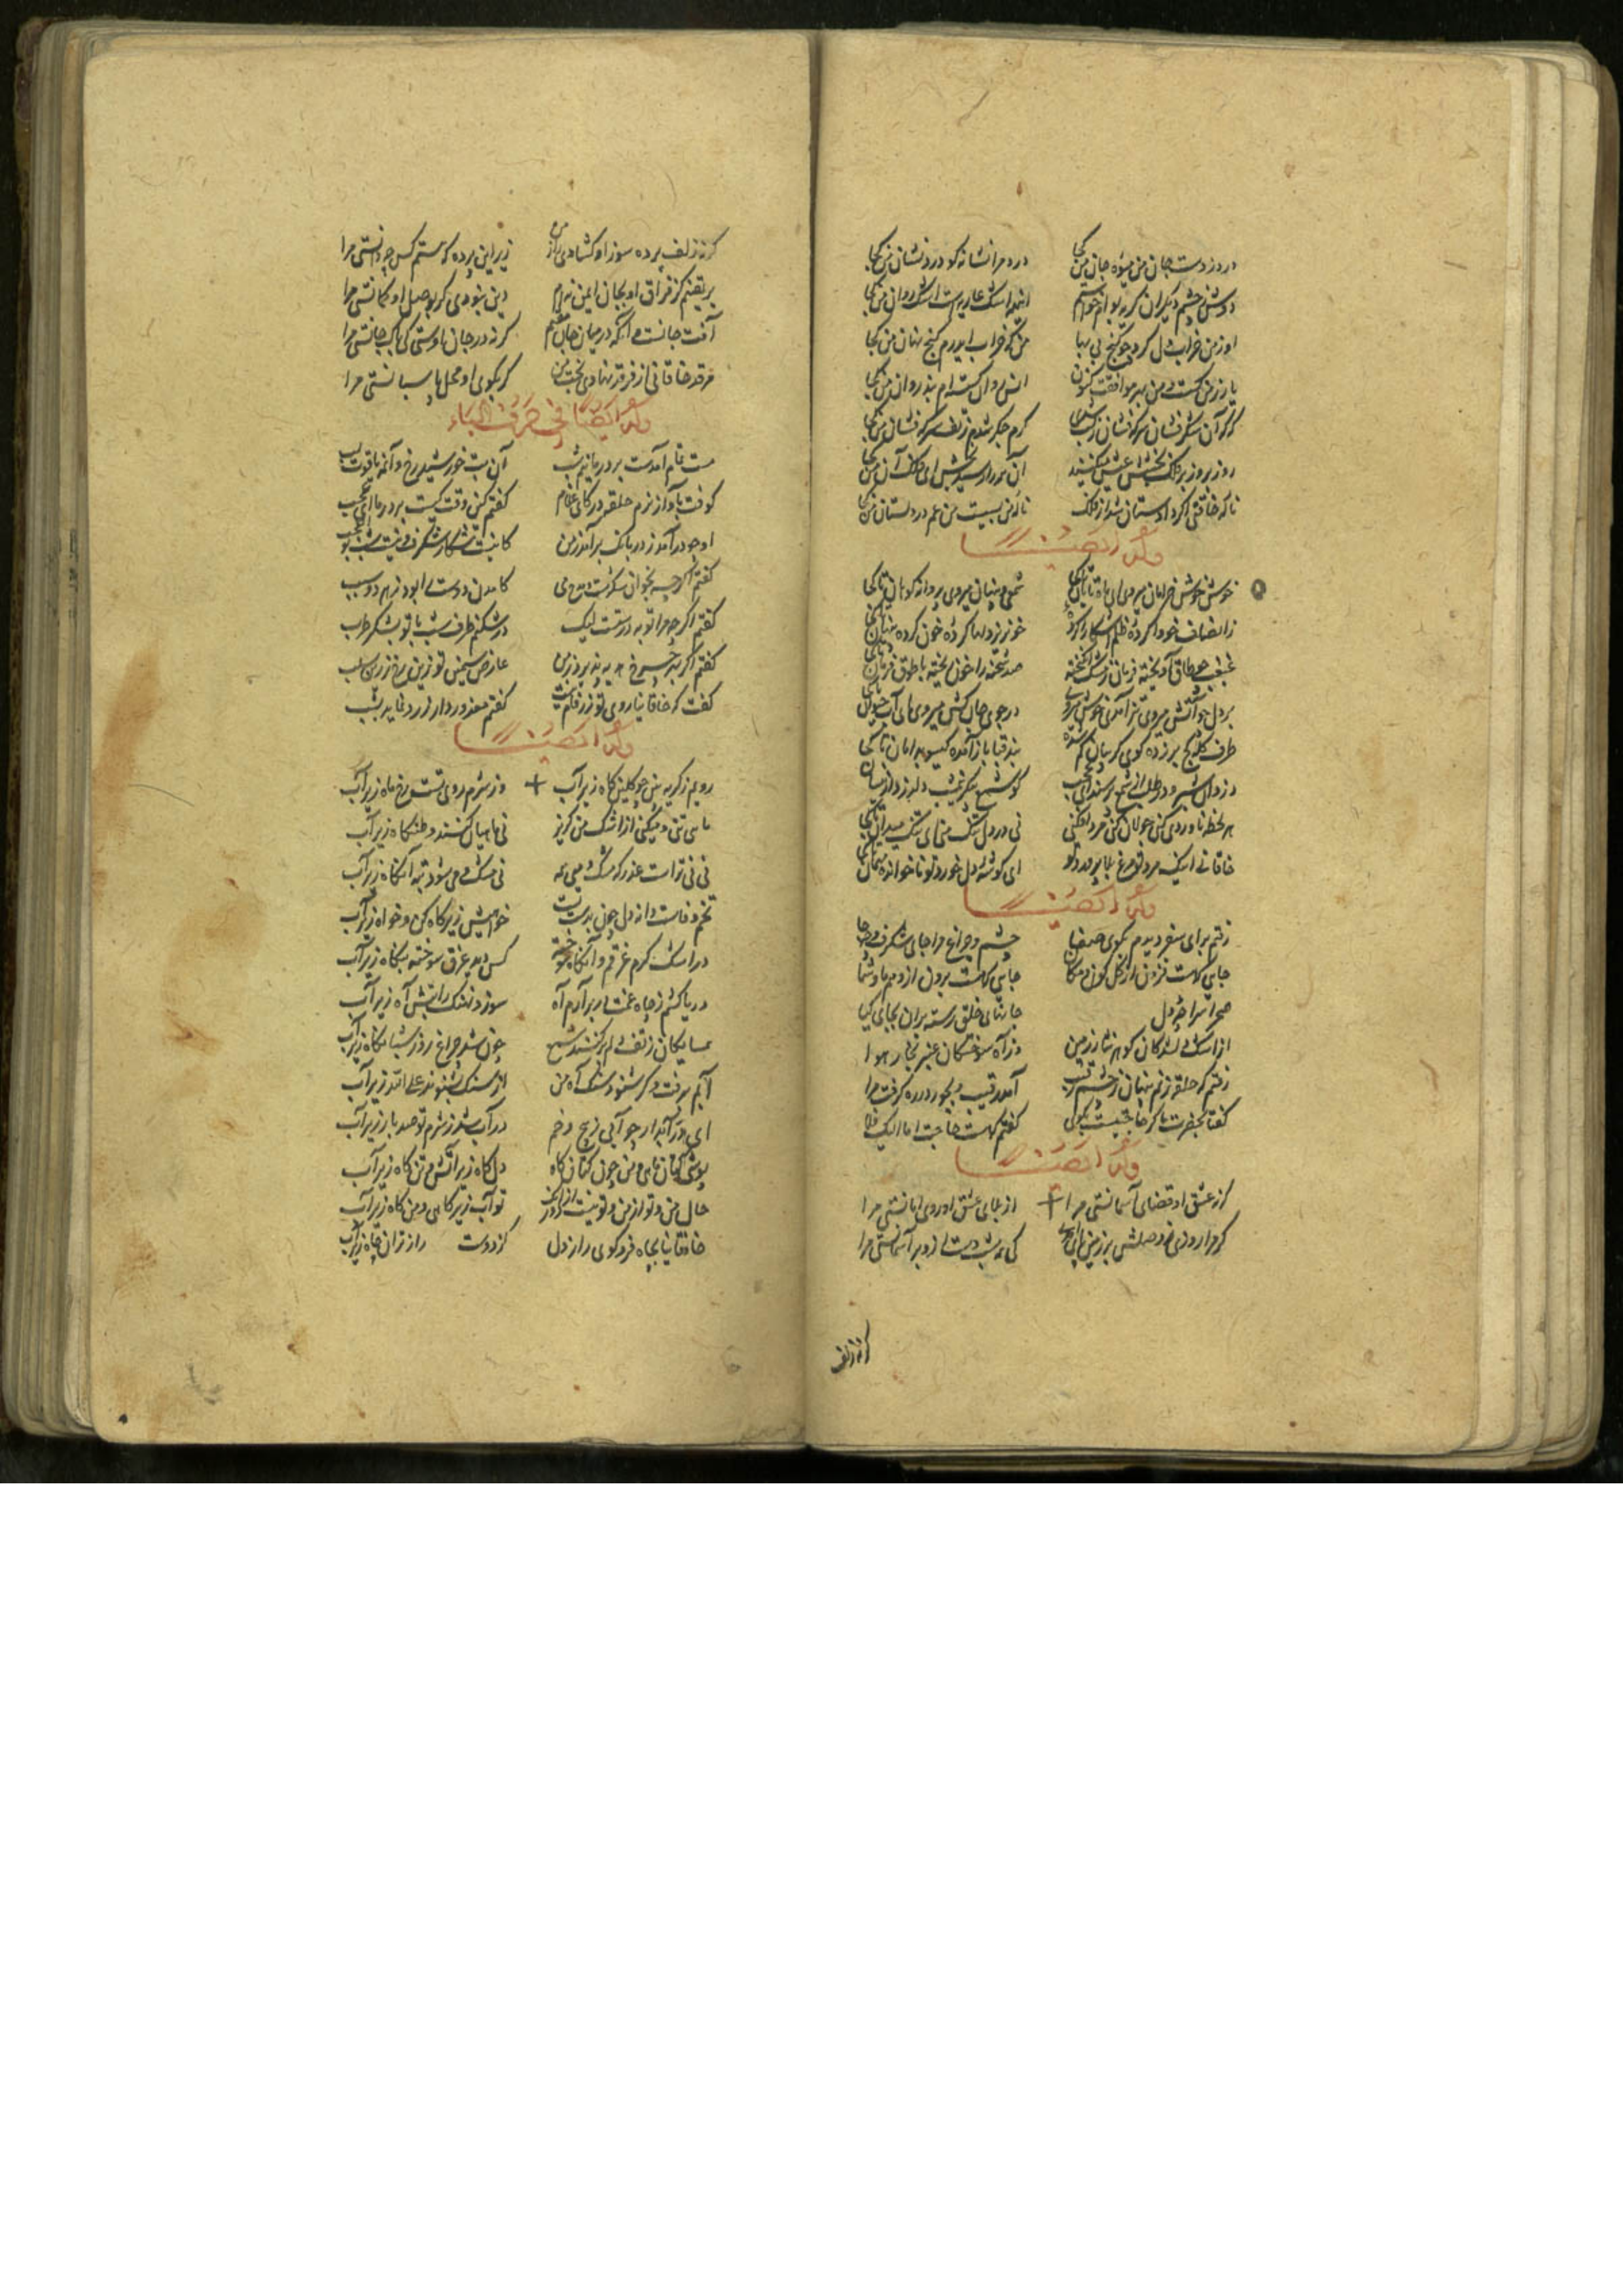 درد زده است جان من میوهٔ جان من کجا درد مرا نشانه کرد درد نشان من کجا
دوش ز چشم دیگران گریه بوام خواستم این همه اشک عاریست اشک روان من کجا
او ز من خراب دل کرد چو گنج پی نهان من که خراب اندرم گنج نهان من کجا
یار ز من گسست و من بهر موافقت کنون انس روان گسسته‌ام بند روان من کجا
گرنه آن شکرفشان سرکه‌فشان ز بخت شد گرم جگر شدم ز تب سرکه‌فشان من کجا
روز بروز بر فلک بخشش عیش میکنند آن همه را رسید بخش ای فلک آن من کجا
نالهٔ خاقانی اگر دادستان شد از فلک نالهٔ من نبست غم دادستان من کجا
وله ایضا
خوش خوش خرامان میروی ای شاه خوبان تا کجا شمعی و پنهان میروی پروانه جویان تا کجا
ز انصاف خو وا کرده ظلم آشکارا کرده خونریز دلها کرده خون کرده پنهان تا کجا
غبغب چو طوق آویخته فرمان ز مشک انگیخته صد شحنه را خون ریخته با طوق و فرمان تا کجا
بر دل چو آتش میروی تیز آمدی خوش میروی در جوی جان کش میروی ای آب حیوان تا کجا
طرف کله کج بر زده گوی گریبان گم شده بند قبا باز آمده گیسو بدامان تا کجا
دزدان شبرو در طلب از شمع ترسند ای عجب تو شمع پیکر نیمشب دل دزدی اینسان تا کجا
هر لحظه ناوردی زنی جولان کنی مرد افکنی نی در دل تنگ منی ای تنگ میدان تا کجا
خاقانی اینک مرد تو مرغ بلا پرورد تو ای گوشهٔ دل خورد تو ناخوانده مهمان تا کجا
وله ایضا
رفتم براه صفت دیدم بکوی صفا چشم و چراغ مرا جای شگرف و چه جا
جایی که هست فزون از کل کون و مکان جایی که هست برون از وهم ما و شما
صحن سراچهٔ دل جانهای خلق رسته بران بجای گیا
از اشک دلشدگان گوهر نثار زمین وز آه سوختگان عنبر بخار هوا
رفتم که حلقه زنم پنهان ز چشم رقیب آمد رقیب و بجور در ره گرفت مرا
گفتا بحضرت ما گر حاجتیست بگوی گفتم که هست حاجت اما الیک فلا
وله ایضا
گر نه عشق او قضای آسمانستی مرا از بلای عشق او روی امانستی مرا
گر مرا روزی ز وصلش بر زمین پای آمدی کی همه شب دست از او بر آسمانستی مرا
گر نه زلف
گر نه زلف پرده سوز او گشادی راز من زیر این پرده که هستم کس چه دانستی مرا
بر یقینم کز فراق او بجان ایمن نیم وین نبودی گر بوصل او گمانستی مرا
آفت جان است و آنگه در میان جان مقیم گر نه در جان اوستی کی باک جانستی مرا
مرقد خاقانی از فرقد نهادی بخت من گر بکوی او محل پاسبانستی مرا
وله ایضا فی حرف الباء
مست تمام آمدست بر در ما نیمشب آن بت خورشید رخ و آن مه یاقوت لب
کوفت بآواز نرم حلقهٔ در کای غلام گفتم کین وقت کیست بر در ما ای عجب
او چو درآمد ز در بانگ برآمد ز من کاینت شکاری شگرف وینت شبی بوالعجب
گفتم اگر چه نخوانی سکرست می کامدن دوست را بود ز هر دو سبب
گفتم اگر چه مرا توبه درستست لیک درشکنم طرف شب با تو بشکر طرب
گفتم اگر بهر چرخ هدیه پذیرد ز من عارض سیمین تو زین رخ زرین سلب
گفت که خاقانیا روی تو زر فام چیست گفتم معذور دار زر ننماید بشب
وله ایضا
رویم ز گریه بین چو گلین کاه زیر آب وز شرم روی تست رخ ماه زیر آب
ماهی تنی و میکنی از اشک من گریز نی ماهیان کنند وطنگاه زیر آب
نی نی تراست عذر که مشک و می نه نی مشک و می شود تبه آنگاه زیر آب
تخم وفاست دانه دل چون بدست تست خواهیش زیر گاه کن و خواه زیر آب
در اشک گرم غرقم و آنگاه سوخته کس دید غرق سوخته بنگاه زیر آب
دریا کشم ز چاه غمت ار برآرم آه سوزد نهنگ را تبش آه زیر آب
همسایگان ز تف دلم برکنند شمع چون شد چراغ روز شبانگاه زیر آب
آبم برفت و گر شنود سنگ آه من از سنگ بشنوند علی الله زیر آب
ای در آبدار جو آبی ز پیچ و خم در آب شد ز شرم تو صد بار زیر آب
پوشی کتان ماهی و من چون کتان کاه دل کاه زیر آتش و تن کاه زیر آب
حال من و تو از من و تو نیست دور از آنک تو آب زیر کاهی و من کاه زیر آب
خاقانیا بچاه فرو گوی راز دل کز دوست راز تران چاه زیر آب